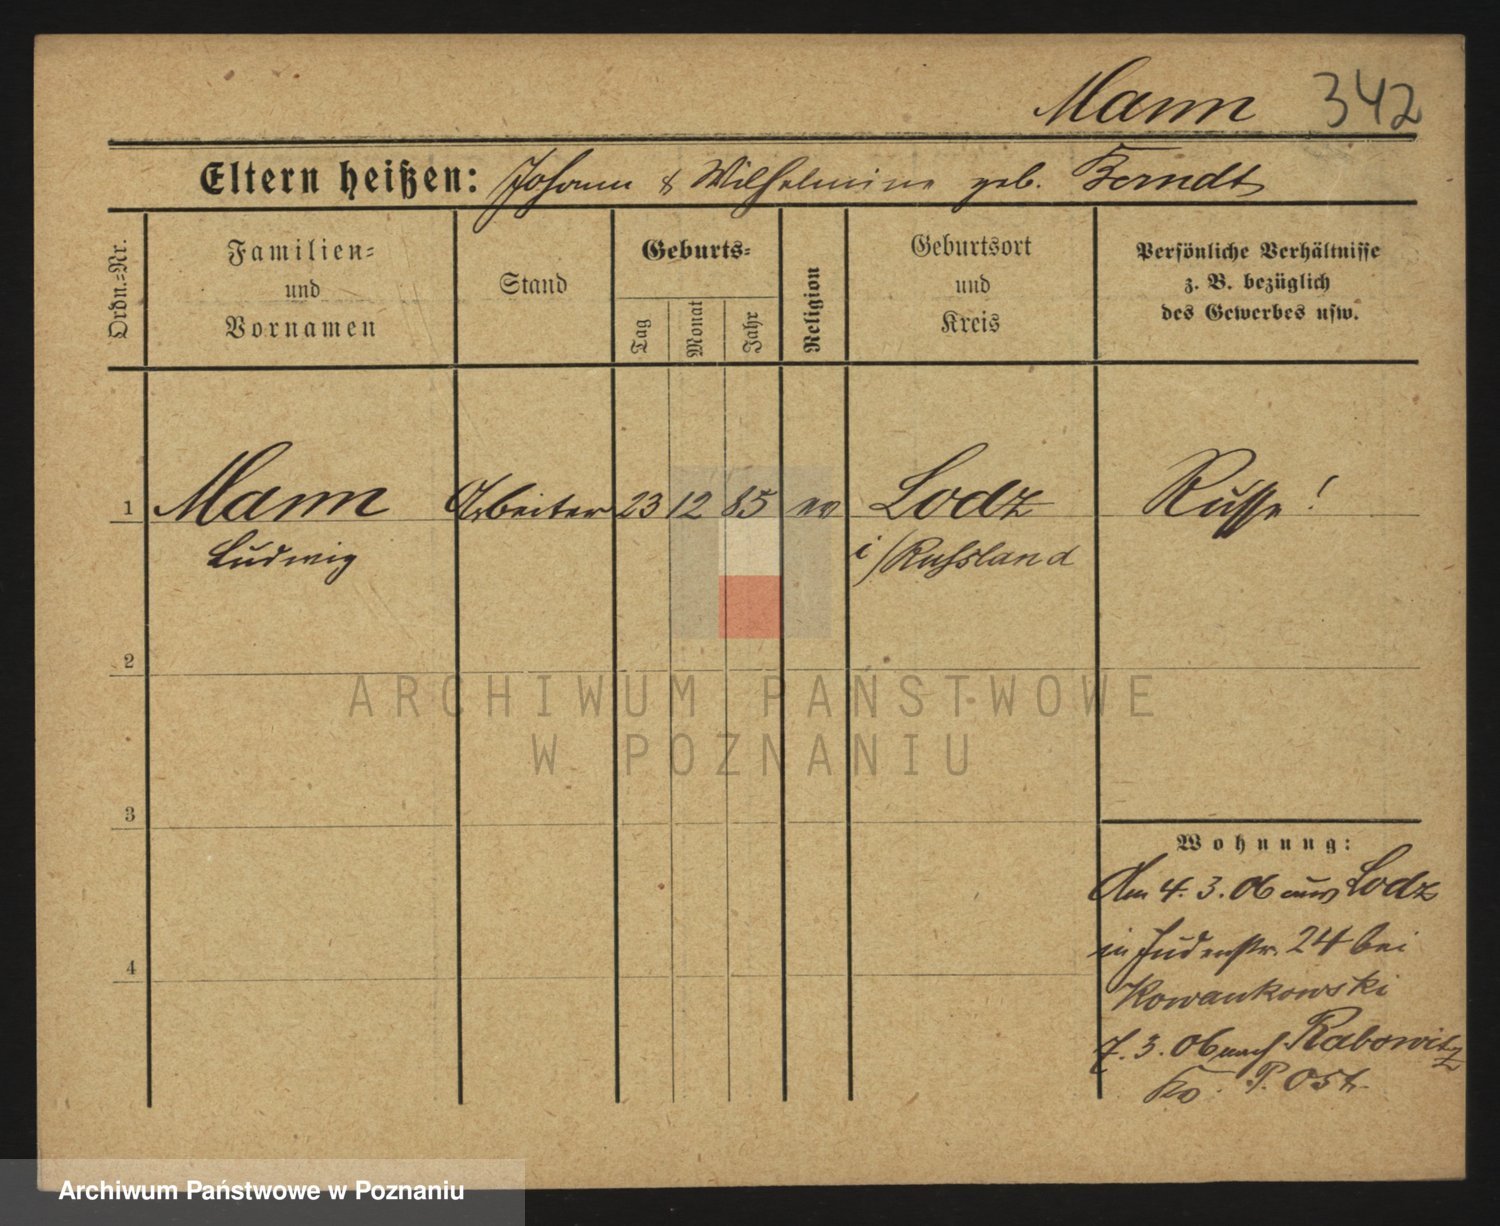 Mann 342
Eltern heißen: Johann & Wilhelmine geb. Berndt
Ordn.-Nr.
Familien-
und
Vornamen
Stand
Geburts-
Tag
Monat
Jahr
Religion
Geburtsort
und
Kreis
Persönliche Verhältnisse
z. B. bezüglich
des Gewerbes usw.
1 Mann Arbeiter 23 12 85 ev Lodz Russe!
Ludwig i/Russland
2
3
4
Wohnung:
Am 4. 3. 06 aus Lodz
in Judenstr. 24 bei
Kowankowski
7. 3. 06 nach Rabowitz
P. Ost.
ARCHIWUM PAŃSTWOWE
W POZNANIU
Archiwum Państwowe w Poznaniu